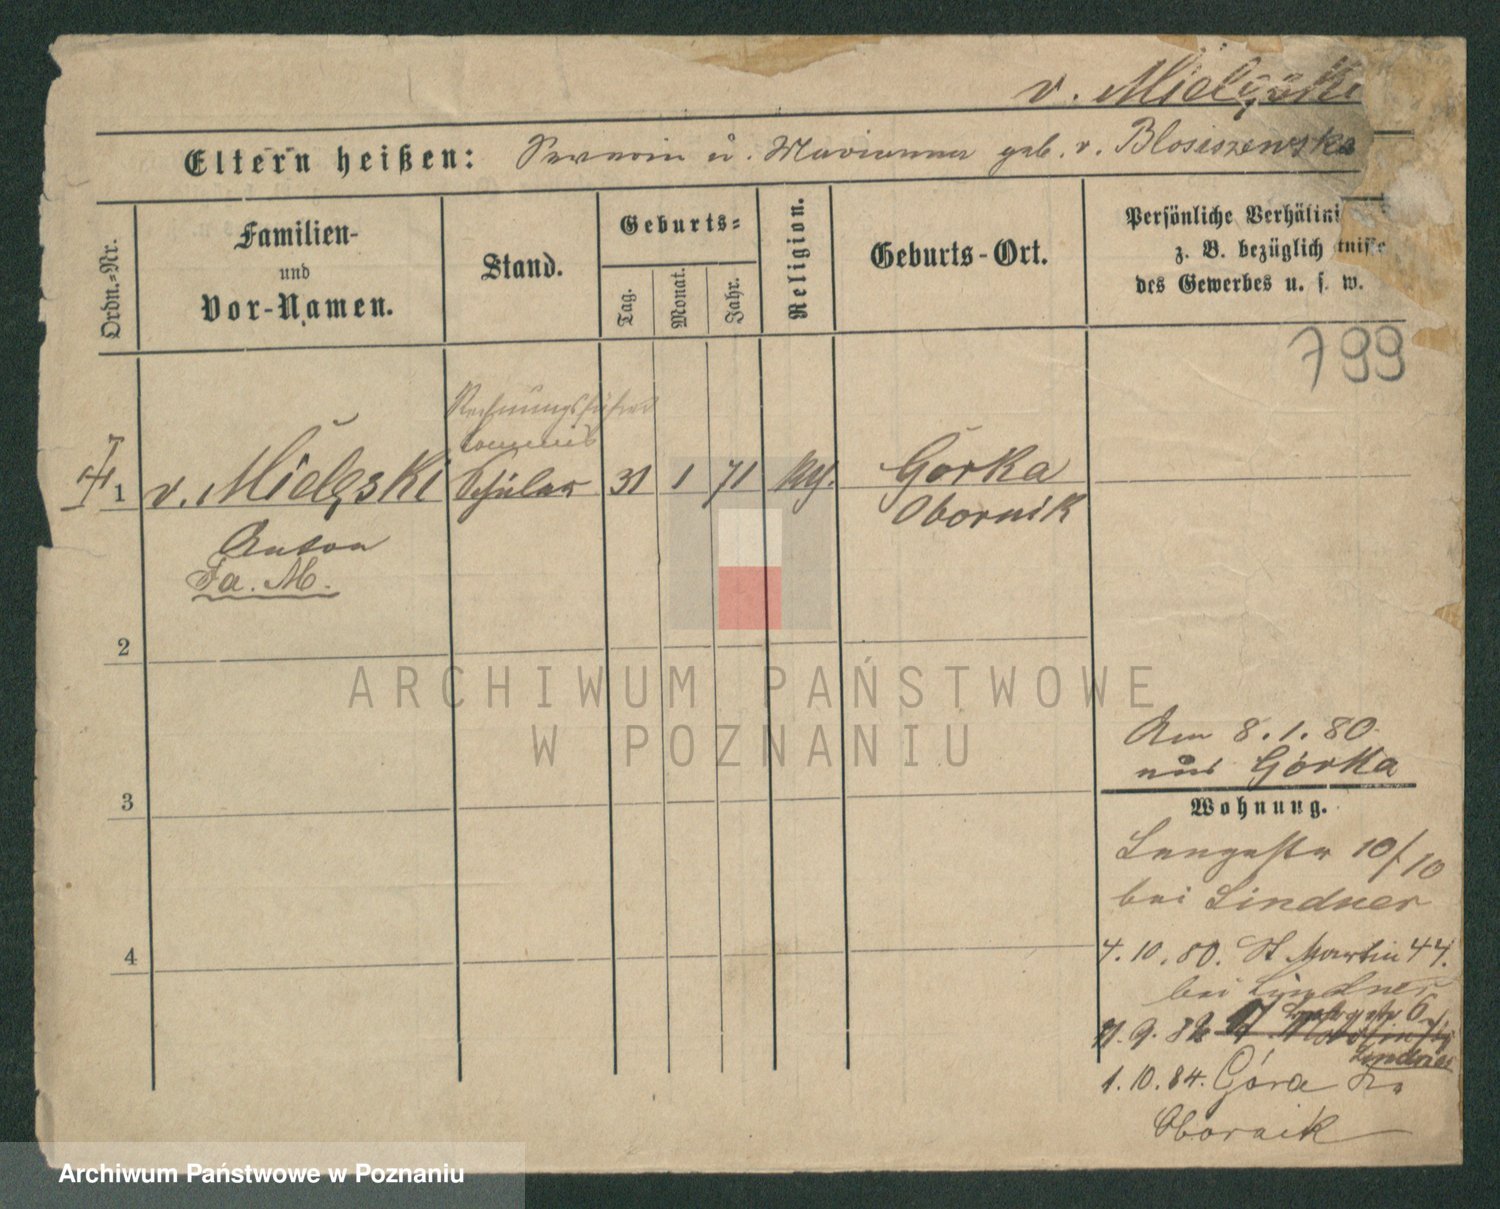 v. Mielęski
Eltern heißen: Severin u. Marianna geb. v. Blosiszewska
Ordn.-Nr.
Familien-
und
Vor-Namen.
Stand.
Geburts-
Tag.
Monat.
Jahr.
Religion.
Geburts-Ort.
Persönliche Verhältni
z. B. bezüglich tnisse
des Gewerbes u. s. w.
799
Rechnungsführer
Commis
1 v. Mielęski Schüler 31 1 71 Górka
Anton Obornik
Fa. M.
2
ARCHIWUM PAŃSTWOWE
W POZNANIU
Am 8.1.80.
aus Górka
3
Wohnung.
Langestr 10/10
bei Lindner
4
4.10.80. St Martin 44.
bei Lindner
6
Lindner
1.10.84. Góra Kr
Obornik
Archiwum Państwowe w Poznaniu